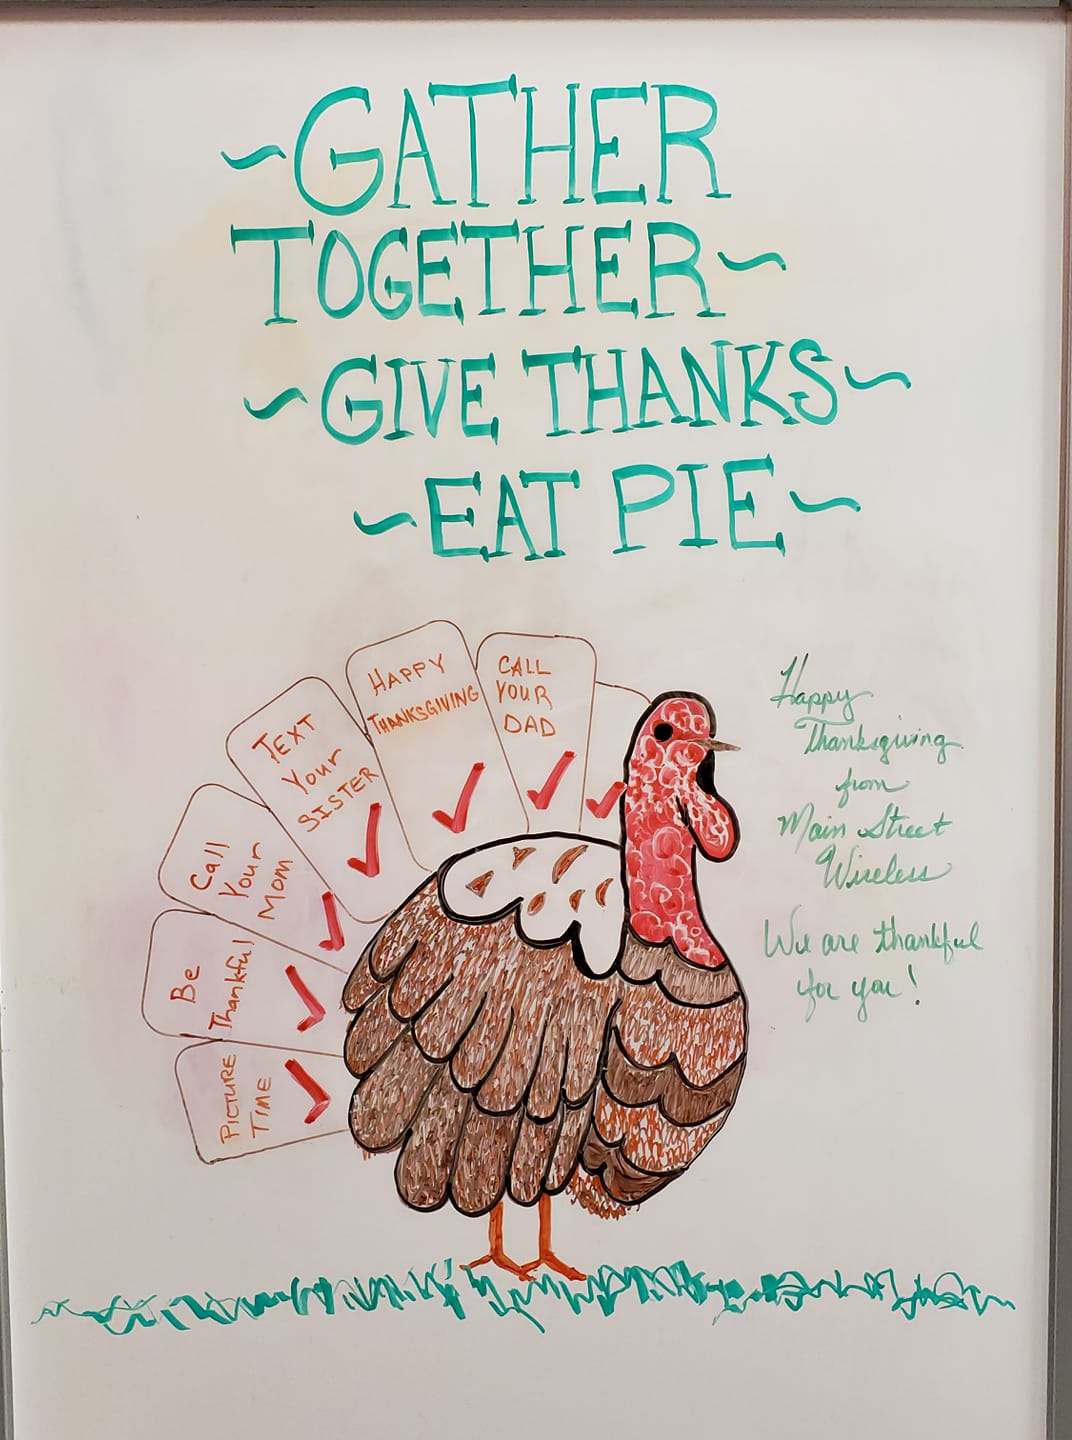 ~GATHER
TOGETHER~
~GIVE THANKS~
~EAT PIE~
HAPPY
THANKSGIVING
CALL
YOUR
DAD
TEXT
Your
SISTER
Call
Your
Mom
Be
Thankful
PICTURE
TIME
Happy
Thanksgiving
from
Main Street
Wireless
We are thankful
for you!